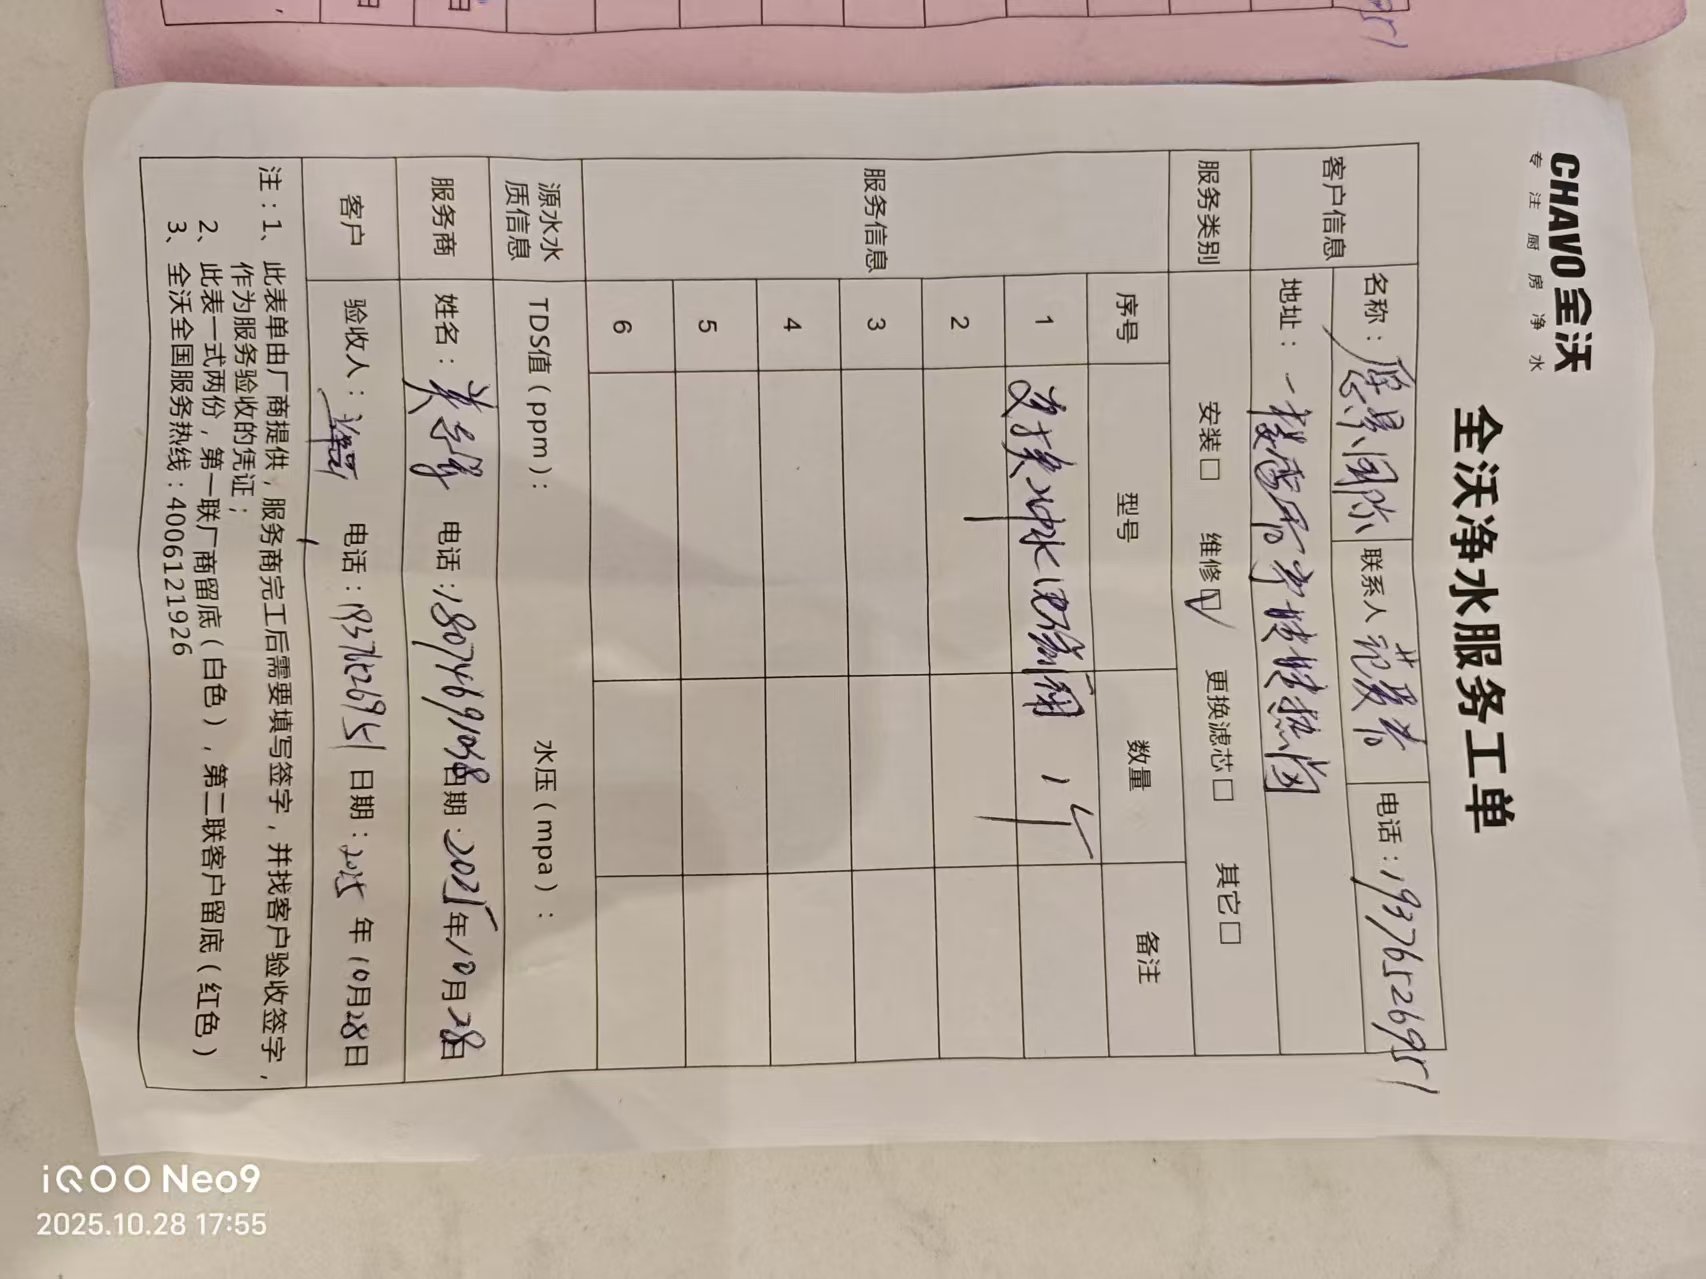 CHAVO 全沃
专注厨房净水
全沃净水服务工单
客户信息 名称: 联系人 电话:19376526951
地址:一楼
服务类别 安装□ 维修☑ 更换滤芯□ 其它□
服务信息 序号 型号 数量 备注
1 更换冲水电磁阀 1个
2
3
4
5
6
源水水质信息 TDS值(ppm): 水压(mpa):
服务商 姓名: 电话:18074691048 日期:2025年10月28日
客户 验收人: 电话:19376526951 日期:2025年10月28日
注:1、此表单由厂商提供,服务商完工后需要填写签字,并找客户验收签字,
作为服务验收的凭证;
2、此表一式两份,第一联厂商留底(白色),第二联客户留底(红色)
3、全沃全国服务热线:4006121926
iQOO Neo9
2025.10.28 17:55